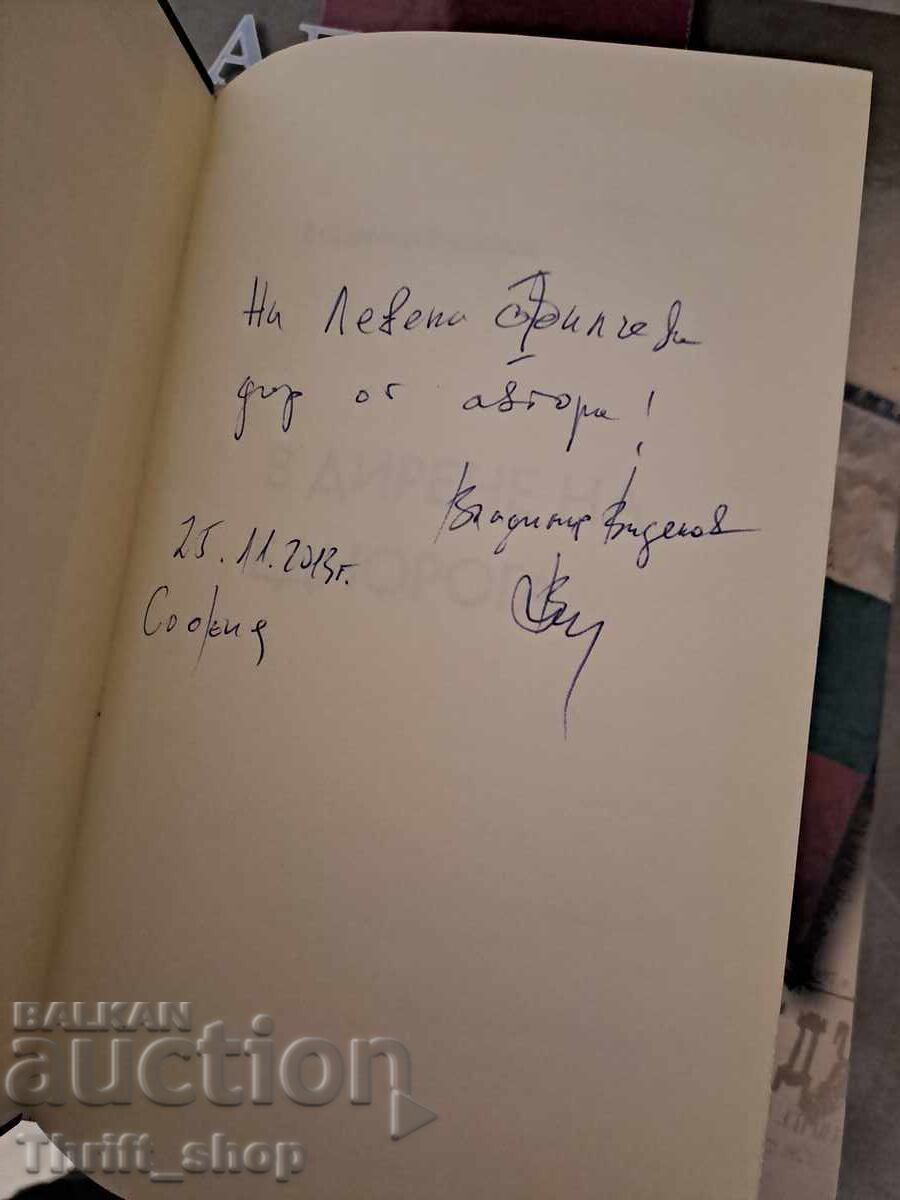 На Левена Филчева
дар от автора!
Владимир Виденов
25.11.2013г.
София
В ДИРЕНЕ НА
BALKAN
auction
Thrift_shop